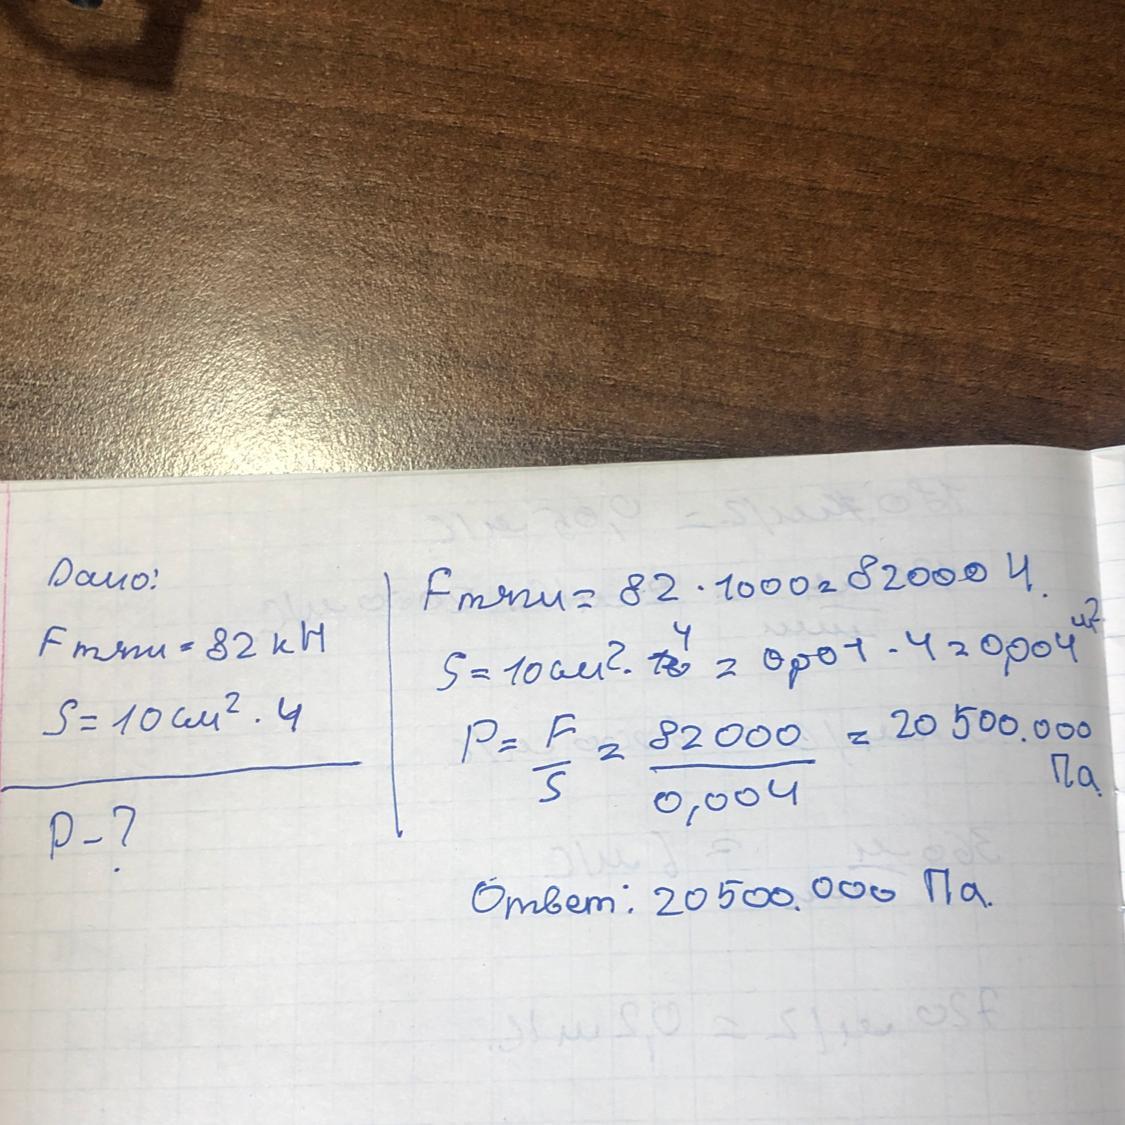 Дано:
Fтяги = 82 кН
S = 10 см² · 4
P - ?
Fтяги = 82 · 1000 = 82000 Н.
S = 10 см² · 4 = 0,001 · 4 = 0,004 м²
P = F/S = 82000/0,004 = 20 500.000 Па.
Ответ: 20 500.000 Па.